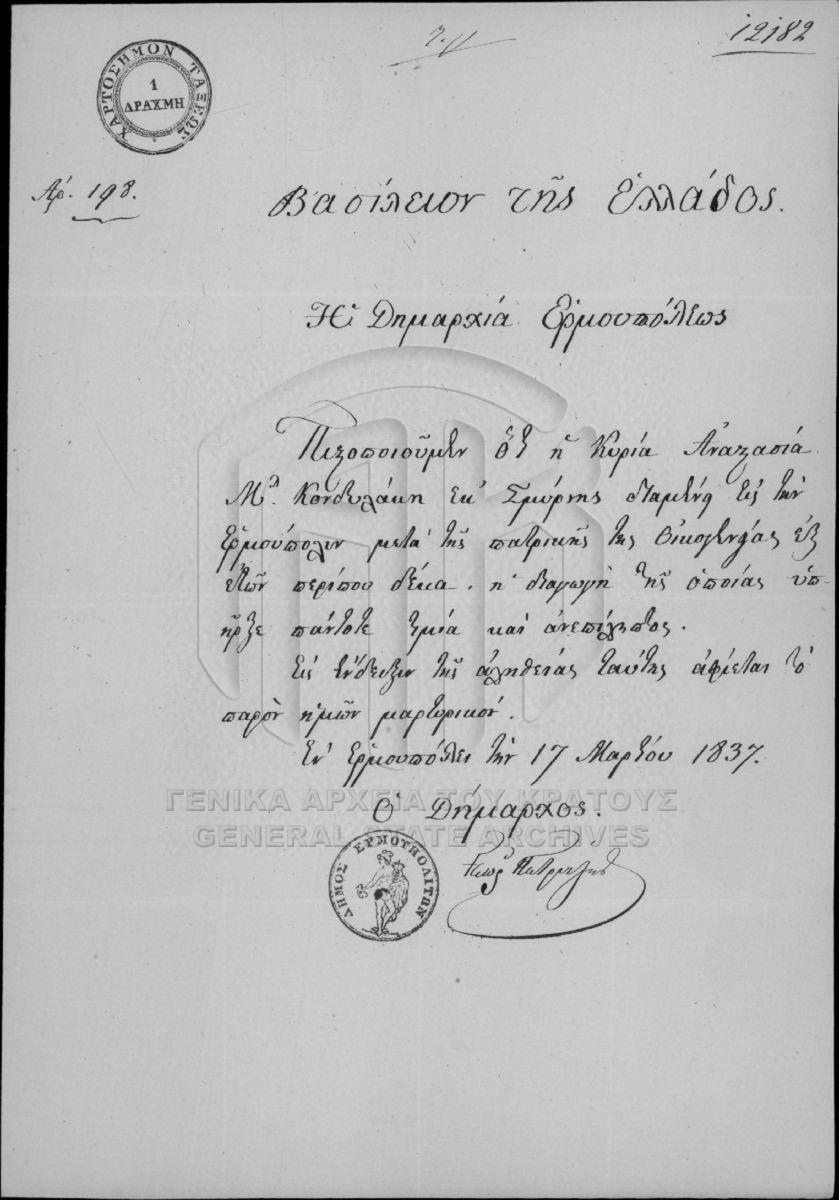 12182
ΧΑΡΤΟΣΗΜΟΝ ΤΑΞΕΩΣ
1
ΔΡΑΧΜΗ
Αρ. 198.
Βασίλειον τῆς Ἑλλάδος.
Ἡ Δημαρχία Ἑρμουπόλεως
Πιστοποιοῦμεν ὅτι ἡ Κυρία Ἀναστασία
Μλ. Κονδυλάκη εκ Σμύρνης διαμένει εἰς τὴν
Ἑρμούπολιν μετὰ τῆς πατρικῆς της Οἰκογενείας ἐξ
ἐτῶν περίπου δέκα. ἡ διαγωγὴ τῆς ὁποίας ὑπ-
ῆρξε πάντοτε τιμία καὶ ἀνεπίληπτος.
Εἰς ἔνδειξιν τῆς ἀληθείας ταύτης ἀφίεται τὸ
παρὸν ἡμῶν μαρτυρικόν.
Ἐν Ἑρμουπόλει τὴν 17 Μαρτίου 1837.
Ὁ Δήμαρχος.
ΓΕΝΙΚΑ ΑΡΧΕΙΑ ΤΟΥ ΚΡΑΤΟΥΣ
GENERAL STATE ARCHIVES
ΔΗΜΟΣ ΕΡΜΟΥΠΟΛΙΤΩΝ
Γεώρ